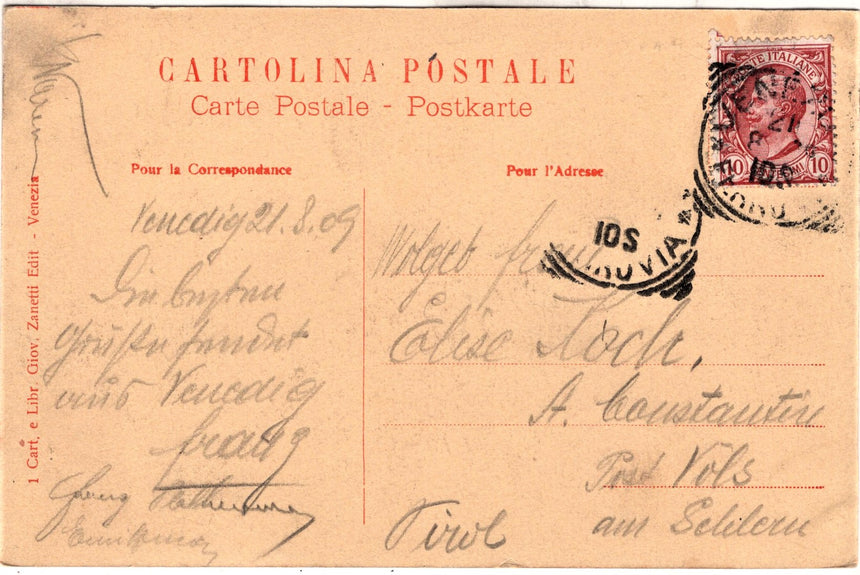 CARTOLINA POSTALE
Carte Postale - Postkarte
Pour la Correspondance
Pour l'Adresse
1 Cart, e Libr Giov, Zanetti Edit - Venezia
POSTE ITALIANE
10 CENTESIMI 10
VENEZIA
21
8
10S
FERROVIA
10S
Venedig 21.8.09
Die besten
Grüße sendet
aus Venedig
Franz
Georg
Wolgeb Frau
Elise Koch,
A. Constantin
Post Völs
am Schlern
Tirol